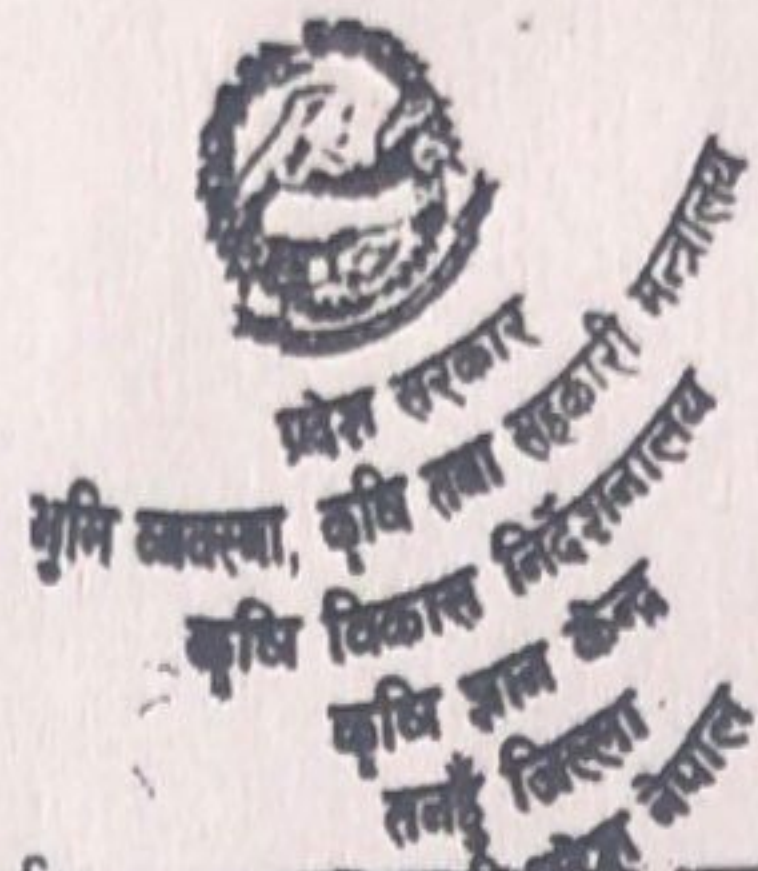 प्रदेश सरकार
भुमि व्यवस्था, कृषि तथा सहकारी मन्त्रालय
कृषि विकास निर्देशनालय
कृषि ज्ञान केन्द्र
तनहुँ जिल्ला
नेपाल